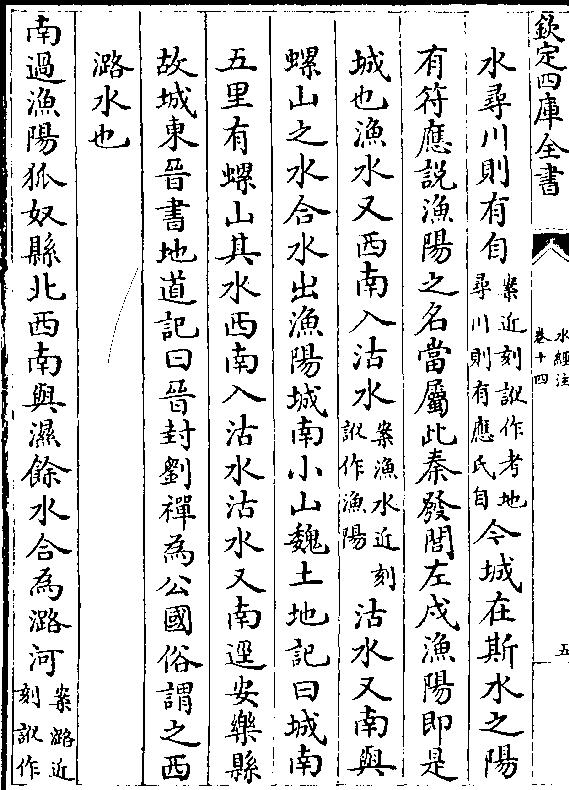 欽定四庫全書
水經注
卷十四
五
水尋川則有自案近刻訛作考地尋川則有應氏自今城在斯水之陽
有符應説漁陽之名當屬此秦發閭左戍漁陽即是
城也漁水又西南入沽水案漁水近刻訛作漁陽沽水又南與
螺山之水合水出漁陽城南小山魏土地記曰城南
五里有螺山其水西南入沽水沽水又南逕安樂縣
故城東晉書地道記曰晉封劉禪為公國俗謂之西
潞水也
南過漁陽狐奴縣北西南與濕餘水合為潞河案潞近刻訛作